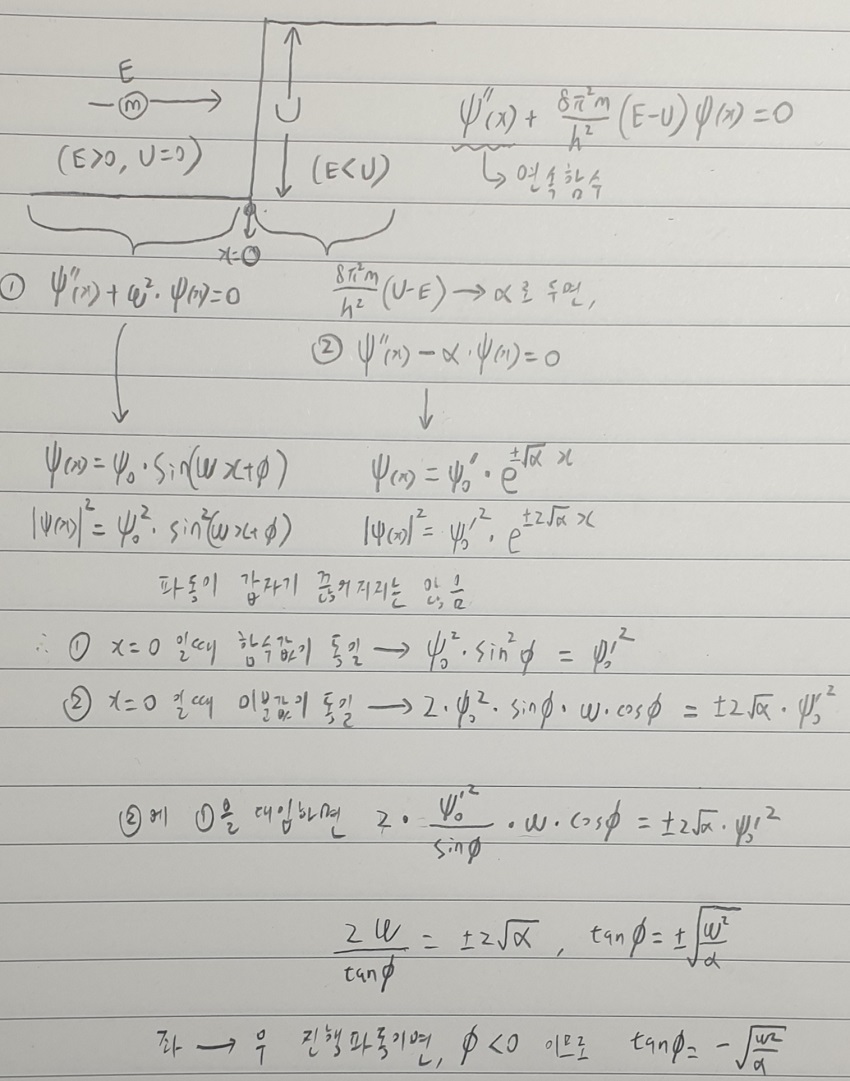 E
m
U
(E>0, U=0)
(E<U)
ψ''(x) + 8π²m/h² (E-U) ψ(x) = 0
↳ 연속함수
x=0
① ψ''(x) + ω²·ψ(x) = 0
8π²m/h² (U-E) → α로 두면,
② ψ''(x) - α·ψ(x) = 0
ψ(x) = ψ₀·sin(ωx+φ)
ψ(x) = ψ₀'·e^(±√α x)
|ψ(x)|² = ψ₀²·sin²(ωx+φ)
|ψ(x)|² = ψ₀'²·e^(±2√α x)
파동이 갑자기 끊어지리는 않음
∴ ① x=0 일때 함수값이 동일 → ψ₀²·sin²φ = ψ₀'²
② x=0 일때 미분값이 동일 → 2·ψ₀²·sinφ·ω·cosφ = ±2√α·ψ₀'²
②에 ①을 대입하면 2·ψ₀'²/sinφ·ω·cosφ = ±2√α·ψ₀'²
2ω/tanφ = ±2√α , tanφ = ±√(ω²/α)
좌 → 우 진행파동이면, φ<0 이므로 tanφ = -√(ω²/α)